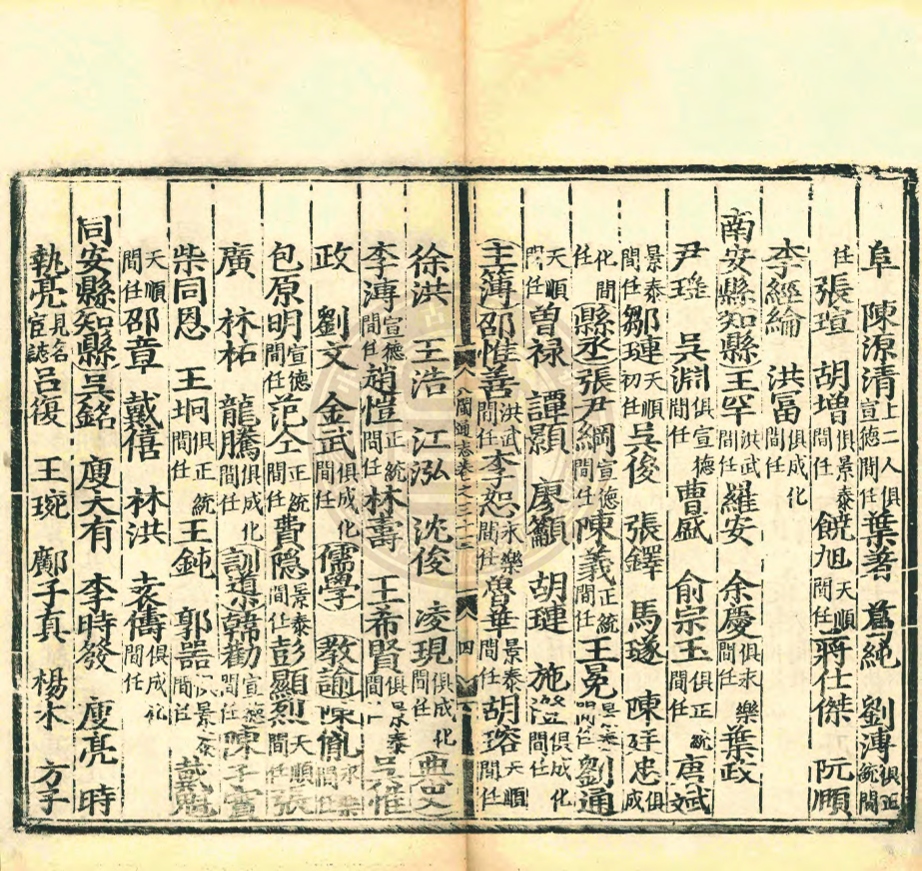 阜 陳源清上二人俱宣德間任葉善 為繩 劉溥俱正統間
任張瑄 胡增俱景泰間任饒旭天順間任蔣仕傑 阮順
李經綸 洪冨俱成化間任
南安縣知縣王罕洪武間任羅安 余慶俱永樂間任葉政
尹瑾 吳淵俱宣德間任曹盛 俞宗玉俱正統間任唐斌
景泰間任鄒璉天順初任吳俊 張鐸 馬璲 陳廷忠俱成
化間任縣丞張尹綱宣德間任陳義正統間任王冕景泰間任劉通
天順間任曾禄 譚顥 廖顲 胡璉 施澄俱成化間任
主簿邵惟善洪武間任李恕永樂間任魯華景泰間任胡瑢天順間任
八閩通志卷之三十三 四
徐洪 王浩 江泓 沈俊 凌現俱成化間任典史
李溥宣德間任趙愷正統間任林壽 王希賢俱景泰間任吳惟
政 劉文 金武俱成化間任儒學教諭陳胤永樂間任
包原明宣德間任范仝正統間任費隱景泰間任彭顯烈天順間任張
廣 林柘 龍騰俱成化間任訓導韓勸宣德間任陳子實
柴同恩 王坰俱正統間任王鈍 郭器俱景泰間任戴冕
天順間任邵章 戴僖 林洪 袁儔俱成化間任
同安縣知縣吳銘 廋大有 李時發 廋亮 時
執亮見名宦誌吕復 王琬 鄺子真 楊木 方子